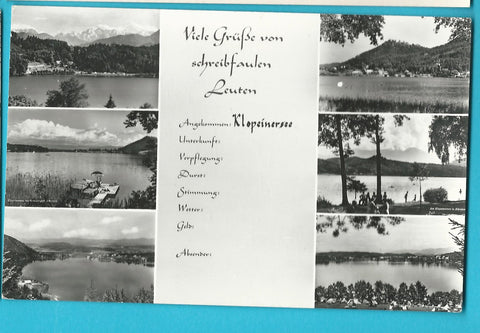 Viele Grüße von
schreibfaulen
Leuten
Angekommen: Klopeinersee
Unterkunft:
Verpflegung:
Durst:
Stimmung:
Wetter:
Geld:
Absender: